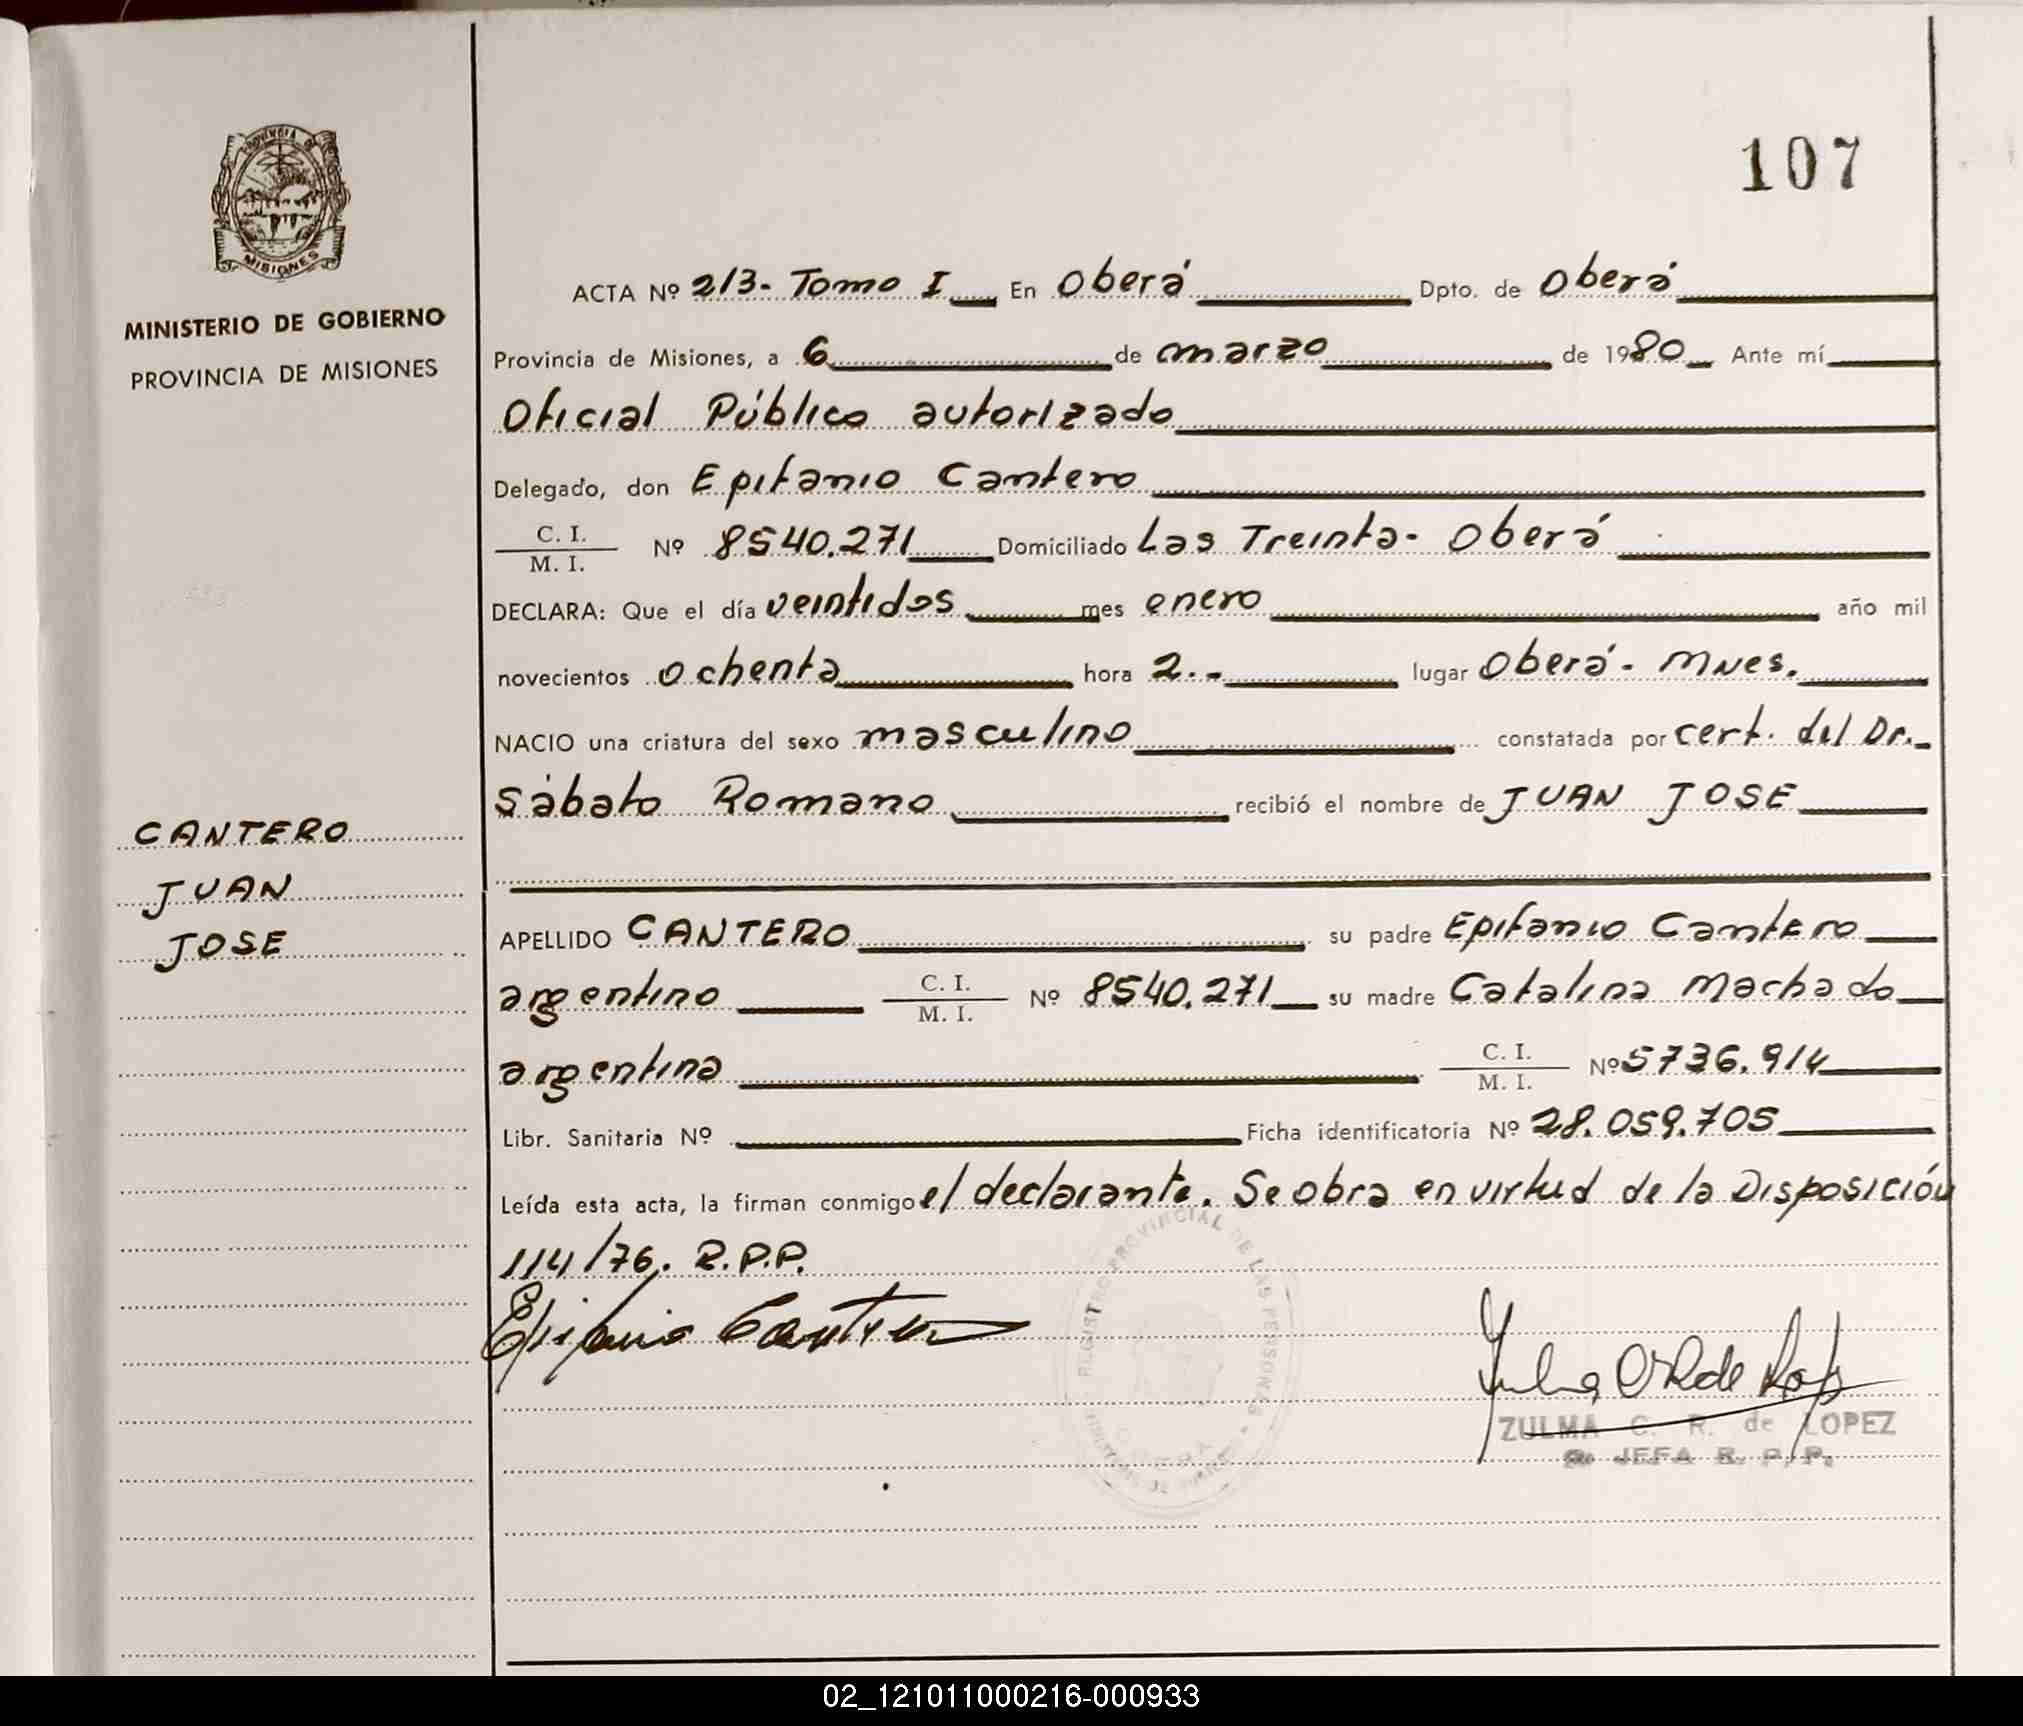 107
PROVINCIA DE
MISIONES
MINISTERIO DE GOBIERNO
PROVINCIA DE MISIONES
ACTA Nº 213- Tomo I En Oberá Dpto. de Oberá
Provincia de Misiones, a 6 de marzo de 1980 Ante mí
Oficial Público autorizado
Delegado, don Epifanio Cantero
C. I.
M. I. Nº 8540.271 Domiciliado Las Treinta- Oberá
DECLARA: Que el día veintidos mes enero año mil
novecientos ochenta hora 2.- lugar Oberá- Mnes.
NACIO una criatura del sexo masculino constatada por cert. del Dr.
Sábato Romano recibió el nombre de JUAN JOSE
CANTERO
JUAN
JOSE
APELLIDO CANTERO su padre Epifanio Cantero
argentino C. I. M. I. Nº 8540.271 su madre Catalina Machado
argentina C. I. M. I. Nº 5736.914
Libr. Sanitaria Nº Ficha identificatoria Nº 28.059.705
Leída esta acta, la firman conmigo el declarante. Se obra en virtud de la Disposición
114/76. R.P.P.
Epifanio Cantero
REGISTRO PROVINCIAL DE LAS PERSONAS
ZULMA C. R. de LOPEZ
JEFA R. P. P.
02_121011000216-000933